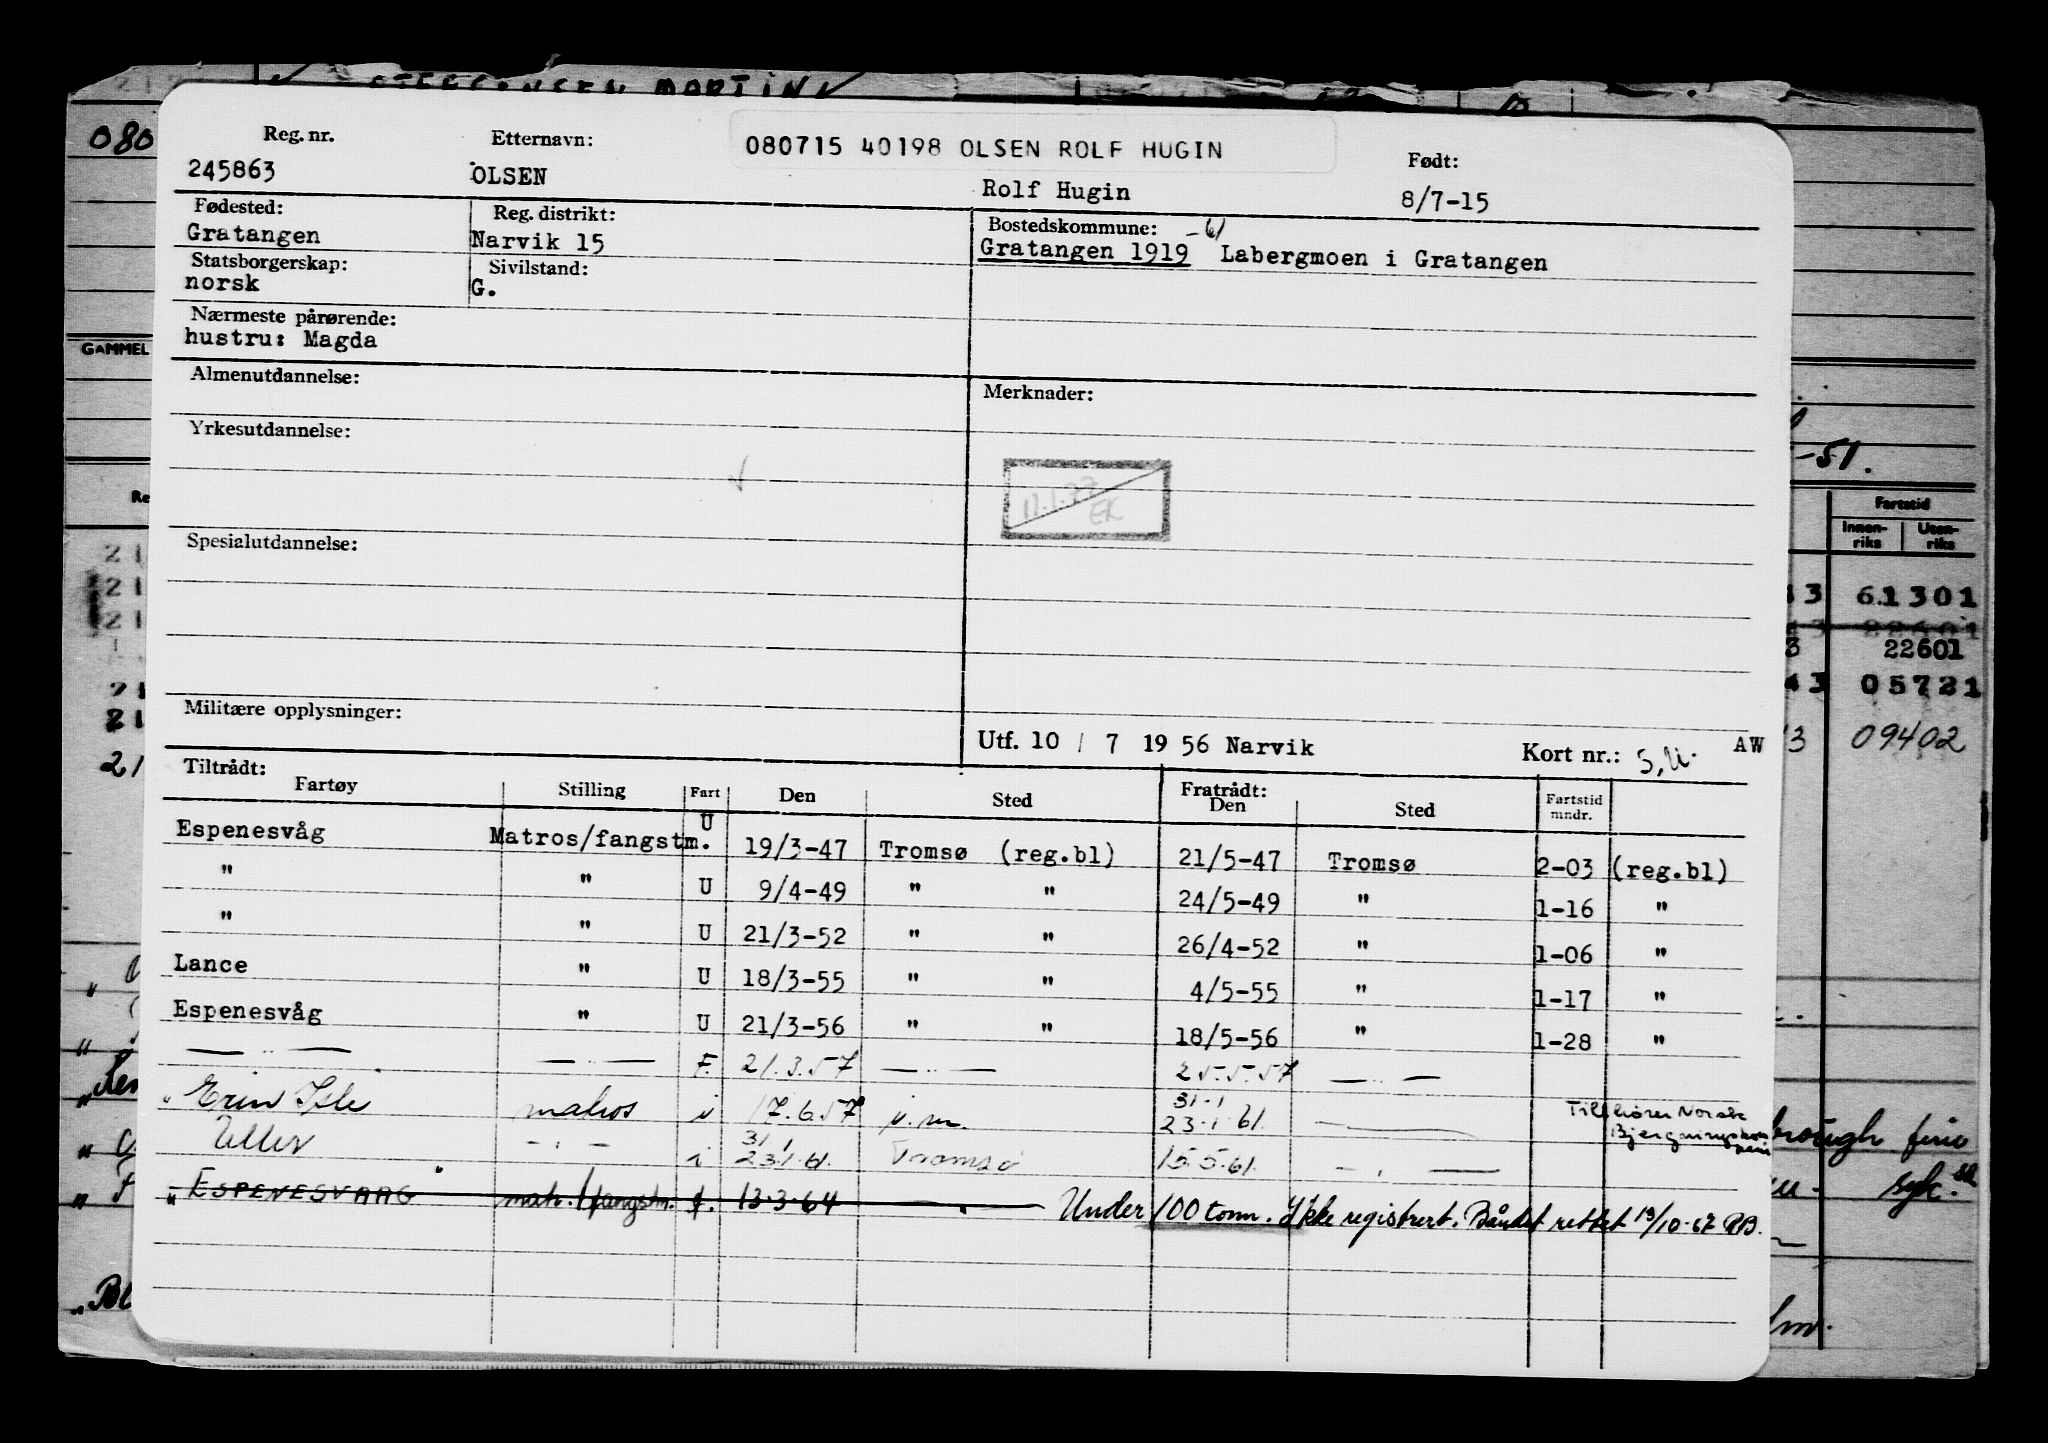 STEFFENSEN MARTIN
080
Reg. nr. Etternavn: 080715 40198 OLSEN ROLF HUGIN Født:
245863 OLSEN Rolf Hugin 8/7-15
Fødested: Reg. distrikt: Bostedskommune:
Gratangen Narvik 15 Gratangen 1919 -61 Labergmoen i Gratangen
Statsborgerskap: Sivilstand:
norsk G.
Nærmeste pårørende:
hustru: Magda
GAMMEL
Almenutdannelse: Merknader:
Yrkesutdannelse:
-51.
11.1.77
EK
Fartstid
Innen-riks Uten-riks
Spesialutdannelse:
61301
22601
22601
05721
09402
Militære opplysninger:
Utf. 10 / 7 19 56 Narvik Kort nr.: S.U. AW
Tiltrådt: Fratrådt:
Fartøy Stilling Fart Den Sted Den Sted Fartstid mndr.
Espenesvåg Matros/fangstm. U 19/3-47 Tromsø (reg.bl) 21/5-47 Tromsø 2-03 (reg.bl)
" " U 9/4-49 " " 24/5-49 " 1-16 "
" " U 21/3-52 " " 26/4-52 " 1-06 "
Lance " U 18/3-55 " " 4/5-55 " 1-17 "
Espenesvåg " U 21/3-56 " " 18/5-56 " 1-28 "
— „ — — „ — F. 21.3.57 — „ — 25.5.57 — „ —
31.1
„ matros i 17.6.57 23.1.61. Tilhører Norsk
Bjergningskompani
31.1
Uller - „ - i 23.1.61. Tromsø 15.5.61. - „ —
„ ESPENESVAAG matr./fangstm. f. 13.3.64 — Under 100 tonn. Ikke registrert. Båndet rettet 13/10-67 RB.